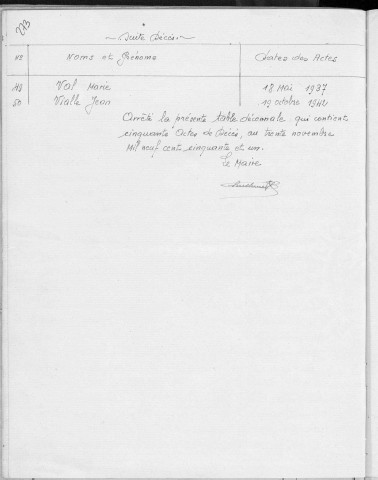 273
~ Suite Décès ~
Nº Noms et Prénoms Dates des Actes
49 Val Marie 18 Mai 1937
50 Vialle Jean 19 octobre 1942
Arrêté la présente table décennale qui contient
cinquante Actes de Décès, au trente novembre
Mil neuf cent cinquante et un.
Le Maire